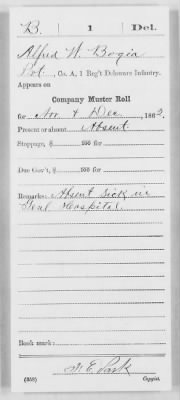 B. 1 Del.
Alfred W. Bogia
Pvt., Co. A, 1 Reg't Delaware Infantry.
Appears on
Company Muster Roll
for Nov & Dec, 1862.
Present or absent Absent
Stoppage, $ 100 for
Due Gov't, $ 100 for
Remarks: Absent sick in
Genl Hospital.
Book mark:
(358) Copyist.